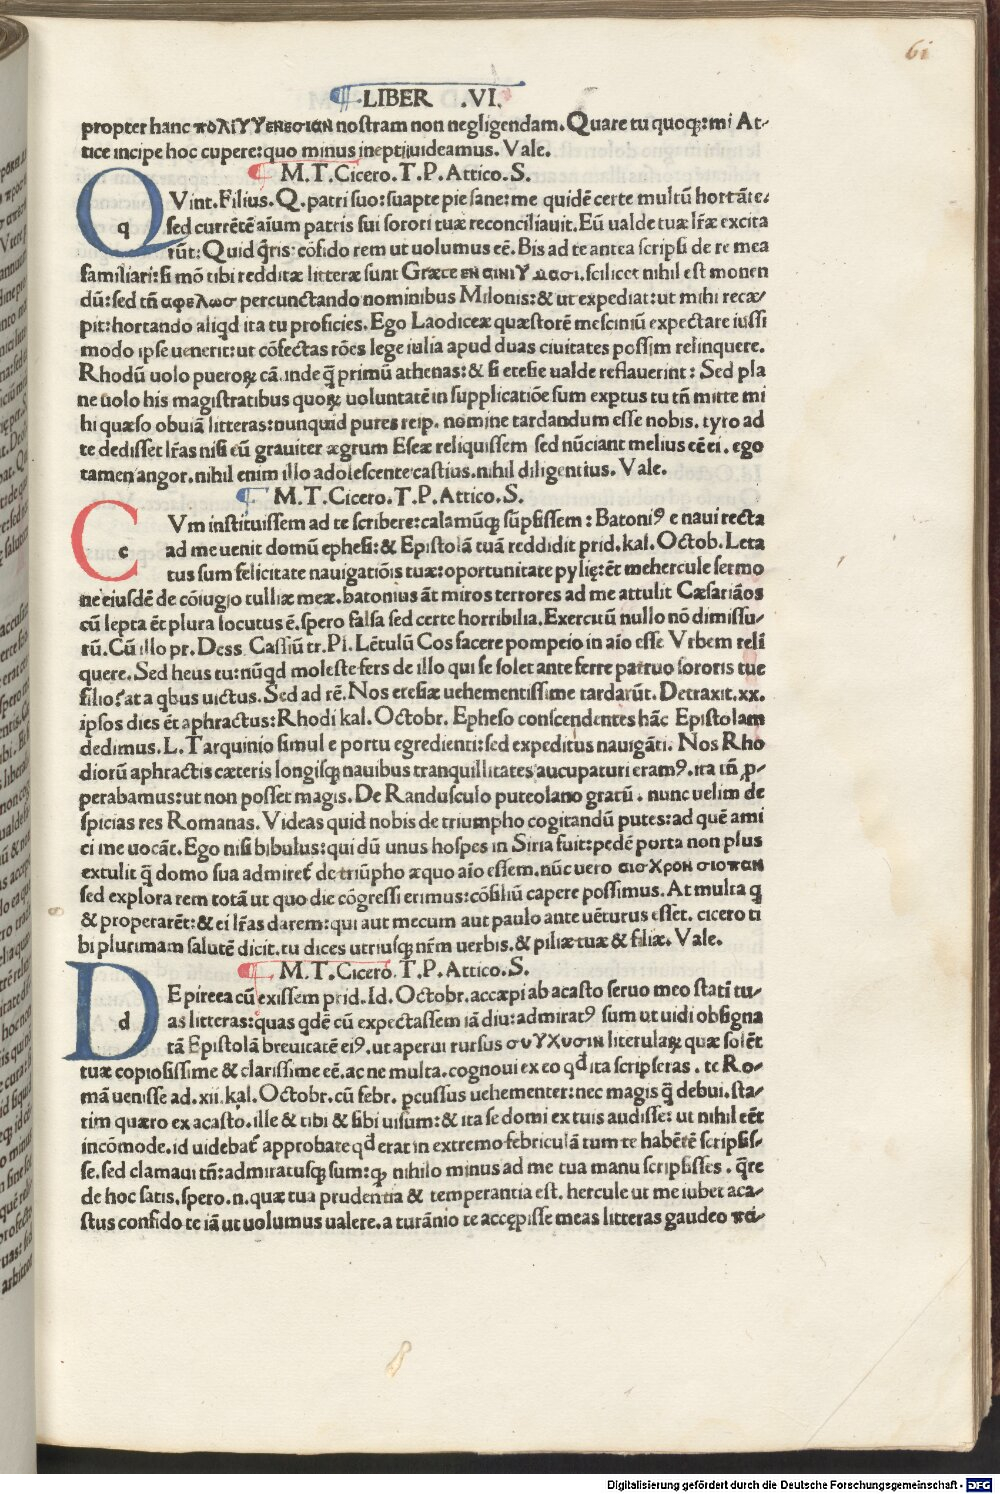 61
LIBER .VI.
propter hanc πολιΥΥενεσιαν nostram non negligendam. Quare tu quoqꝫ: mi At-
tice incipe hoc cupere: quo minus inepti uideamus. Vale.
M.T.Cicero.T.P.Attico.S.
QVint. Filius. Q. patri suo: suapte pie sane: me quidē certe multū hortāte:
sed currētē aīum patris sui sorori tuæ reconciliauit. Eū ualde tuæ lr̄æ excita
rūt: Quid q̄ris: cōfido rem ut uolumus eē. Bis ad te antea scripsi de re mea
familiari: si mō tibi redditæ litteræ sunt Græce εν αινιΥμασι. scilicet nihil est monen
dū: sed tn̄ αφελωσ percunctando nominibus Milonis: & ut expediat: ut mihi recæ-
pit: hortando aliqd ita tu proficies. Ego Laodiceæ quæstorē mesciniū expectare iussi
modo ipse uenerit: ut cōfectas rōes lege iulia apud duas ciuitates possim relinquere.
Rhodū uolo pueroꝝ cā. inde q̄ primū athenas: & si etesiæ ualde reflauerint: Sed pla
ne uolo his magistratibus quoꝝ uoluntatē in supplicatiōe sum exptus tu tn̄ mitte mi
hi quæso obuiā litteras: nunquid putes reip. nomine tardandum esse nobis. tyro ad
te dedisset lr̄as nisi eū grauiter ægrum Eseæ reliquissem sed nūciant melius eē ei. ego
tamen angor. nihil enim illo adolescente castius. nihil diligentius. Vale.
M.T.Cicero.T.P.Attico.S.
CVm instituissem ad te scribere: calamūqꝫ sūpsissem: Batoniꝰ e naui recta
ad me uenit domū ephesi: & Epistolā tuā reddidit prid. kal. Octob. Leta
tus sum felicitate nauigatiōis tuæ: oportunitate pylię: ēt mehercule sermo
ne eiusdē de cōiugio tulliæ meæ. batonius āt miros terrores ad me attulit Cæsariāos
cū lepta ēt plura locutus ē. spero falsa sed certe horribilia. Exercitū nullo nō dimissu-
rū. Cū illo pr. Dess Cassiū tr. Pl. Lētulū Cos facere pompeio in aīo esse Vrbem reli
quere. Sed heus tu: nūqd moleste fers de illo qui se solet ante ferre patruo sororis tue
filio? at a qbus uictus. Sed ad rē. Nos etesiæ uehementissime tardarūt. Detraxit. xx.
ipsos dies ēt aphractus: Rhodi kal. Octobr. Epheso conscendentes hāc Epistolam
dedimus. L. Tarquinio simul e portu egredienti: sed expeditus nauigāti. Nos Rho
diorū aphractis cæteris longisqꝫ nauibus tranquillitates aucupaturi eramꝰ. ita tn̄ ꝓ-
perabamus: ut non posset magis. De Randusculo puteolano gratū. nunc uelim de
spicias res Romanas. Videas quid nobis de triumpho cogitandū putes: ad quē ami
ci me uocāt. Ego nisi bibulus: qui dū unus hospes in Siria fuit: pedē porta non plus
extulit q̄ domo sua admiret̄ de triūpho æquo aīo essem. nūc uero αισχρον σιοπαν
sed explora rem totā ut quo die cōgressi erimus: cōsiliū capere possimus. At multa q
& properarēt: & ei lr̄as darem: qui aut mecum aut paulo ante uēturus esset. cicero ti
bi plurimam salutē dicit. tu dices utriusqꝫ nr̄m uerbis. & piliæ tuæ & filiæ. Vale.
M.T.Cicero.T.P.Attico.S.
DE pireea cū exissem prid. Id. Octobr. accæpi ab acasto seruo meo statī tu-
as litteras: quas qdē cū expectassem iā diu: admiratꝰ sum ut uidi obsigna
tā Epistolā breuitatē eiꝰ. ut aperui rursus συΥΧυσιν literulaꝝ quæ solēt
tuæ copiosissime & clarissime eē. ac ne multa. cognoui ex eo qd ita scripseras. te Ro-
mā uenisse ad. xii. kal. Octobr. cū febr. pcussus uehementer: nec magis q̄ debui. sta-
tim quæro ex acasto. ille & tibi & sibi uisum: & ita se domi ex tuis audisse: ut nihil eēt
incōmode. id uidebat̄ approbate qd erat in extremo febriculā tum te habētē scripsis-
se. sed clamaui tn̄: admiratusqꝫ sum: qꝫ nihilo minus ad me tua manu scripsisses. q̄re
de hoc satis. spero. n. quæ tua prudentia & temperantia est. hercule ut me iubet aca-
stus confido te iā ut uolumus ualere. a turānio te accępisse meas litteras gaudeo πα-
Digitalisierung gefördert durch die Deutsche Forschungsgemeinschaft - DFG